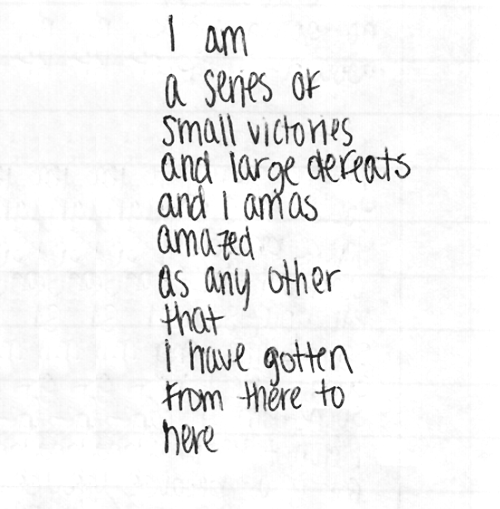 I am
a series of
small victories
and large defeats
and I am as
amazed
as any other
that
i have gotten
from there to
here